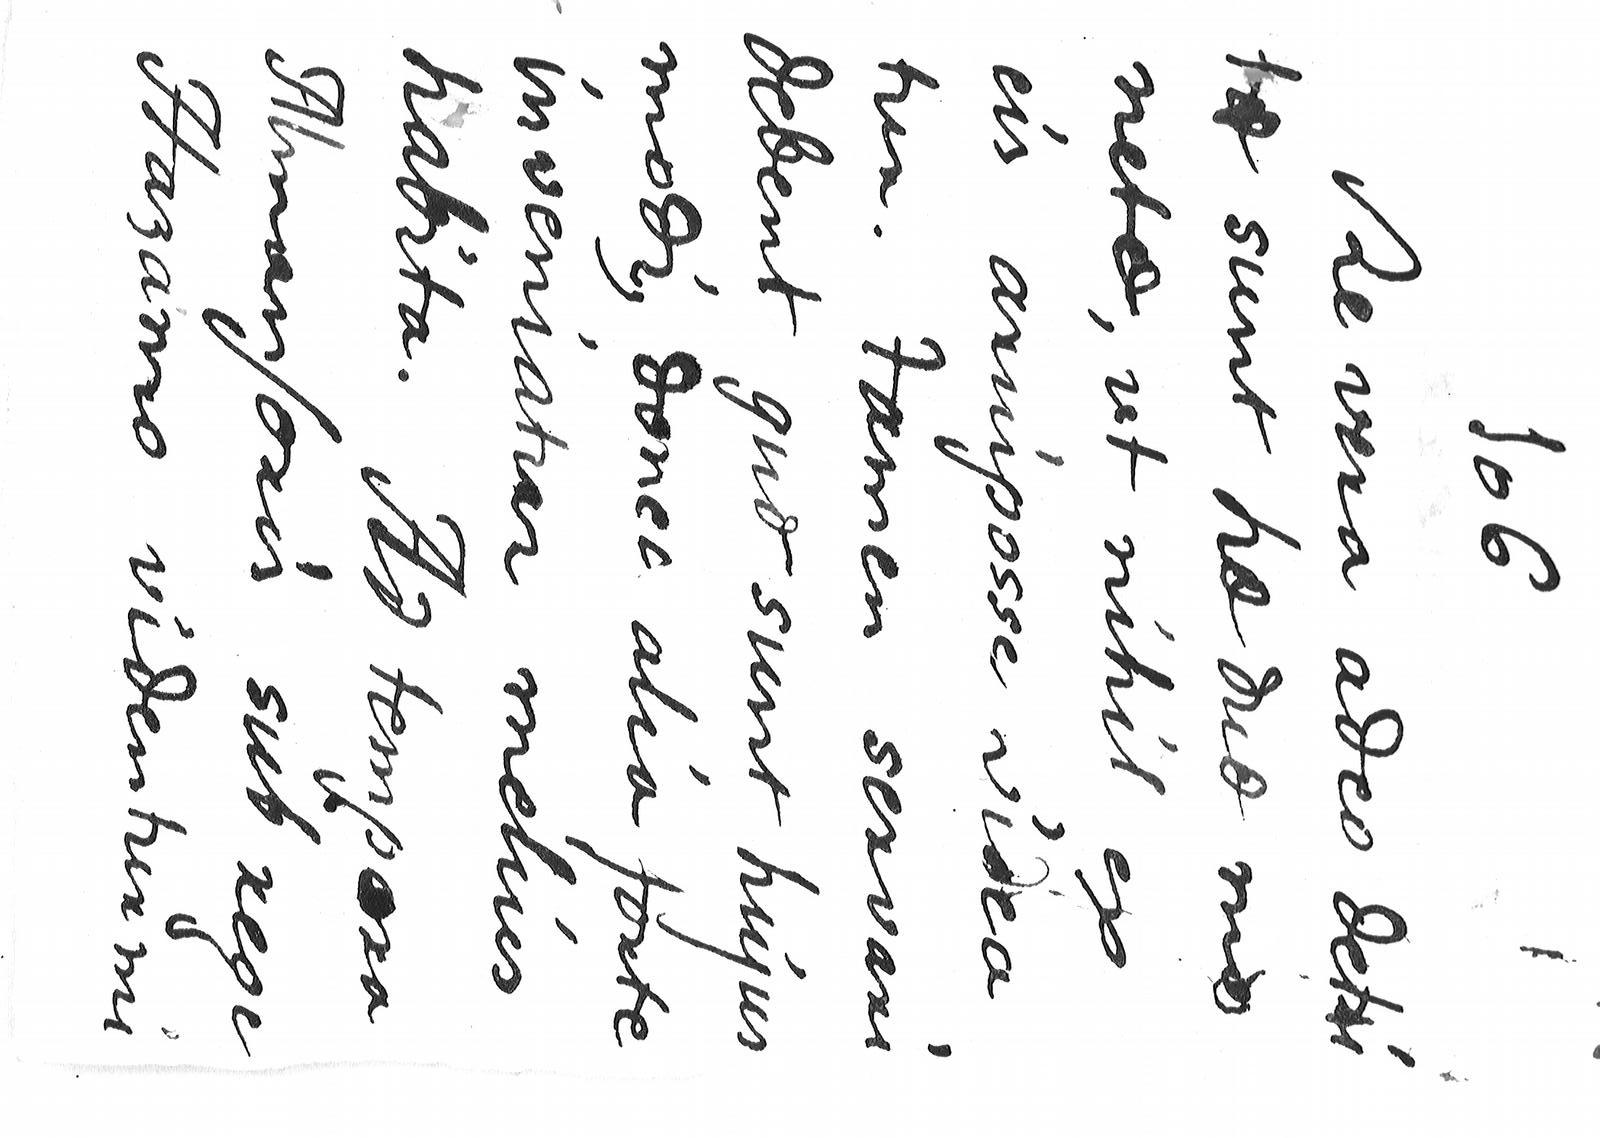 106
Re vera adeo detri
tæ sunt hæ duæ mo
netæ, ut nihil ex
eis arriposse videa
tur. Tamen servari
debent quæ sunt hujus
modi, donec alia forte
inveniatur melius
habita. Ad tempora
Almanſoris sub rege
videntur mi